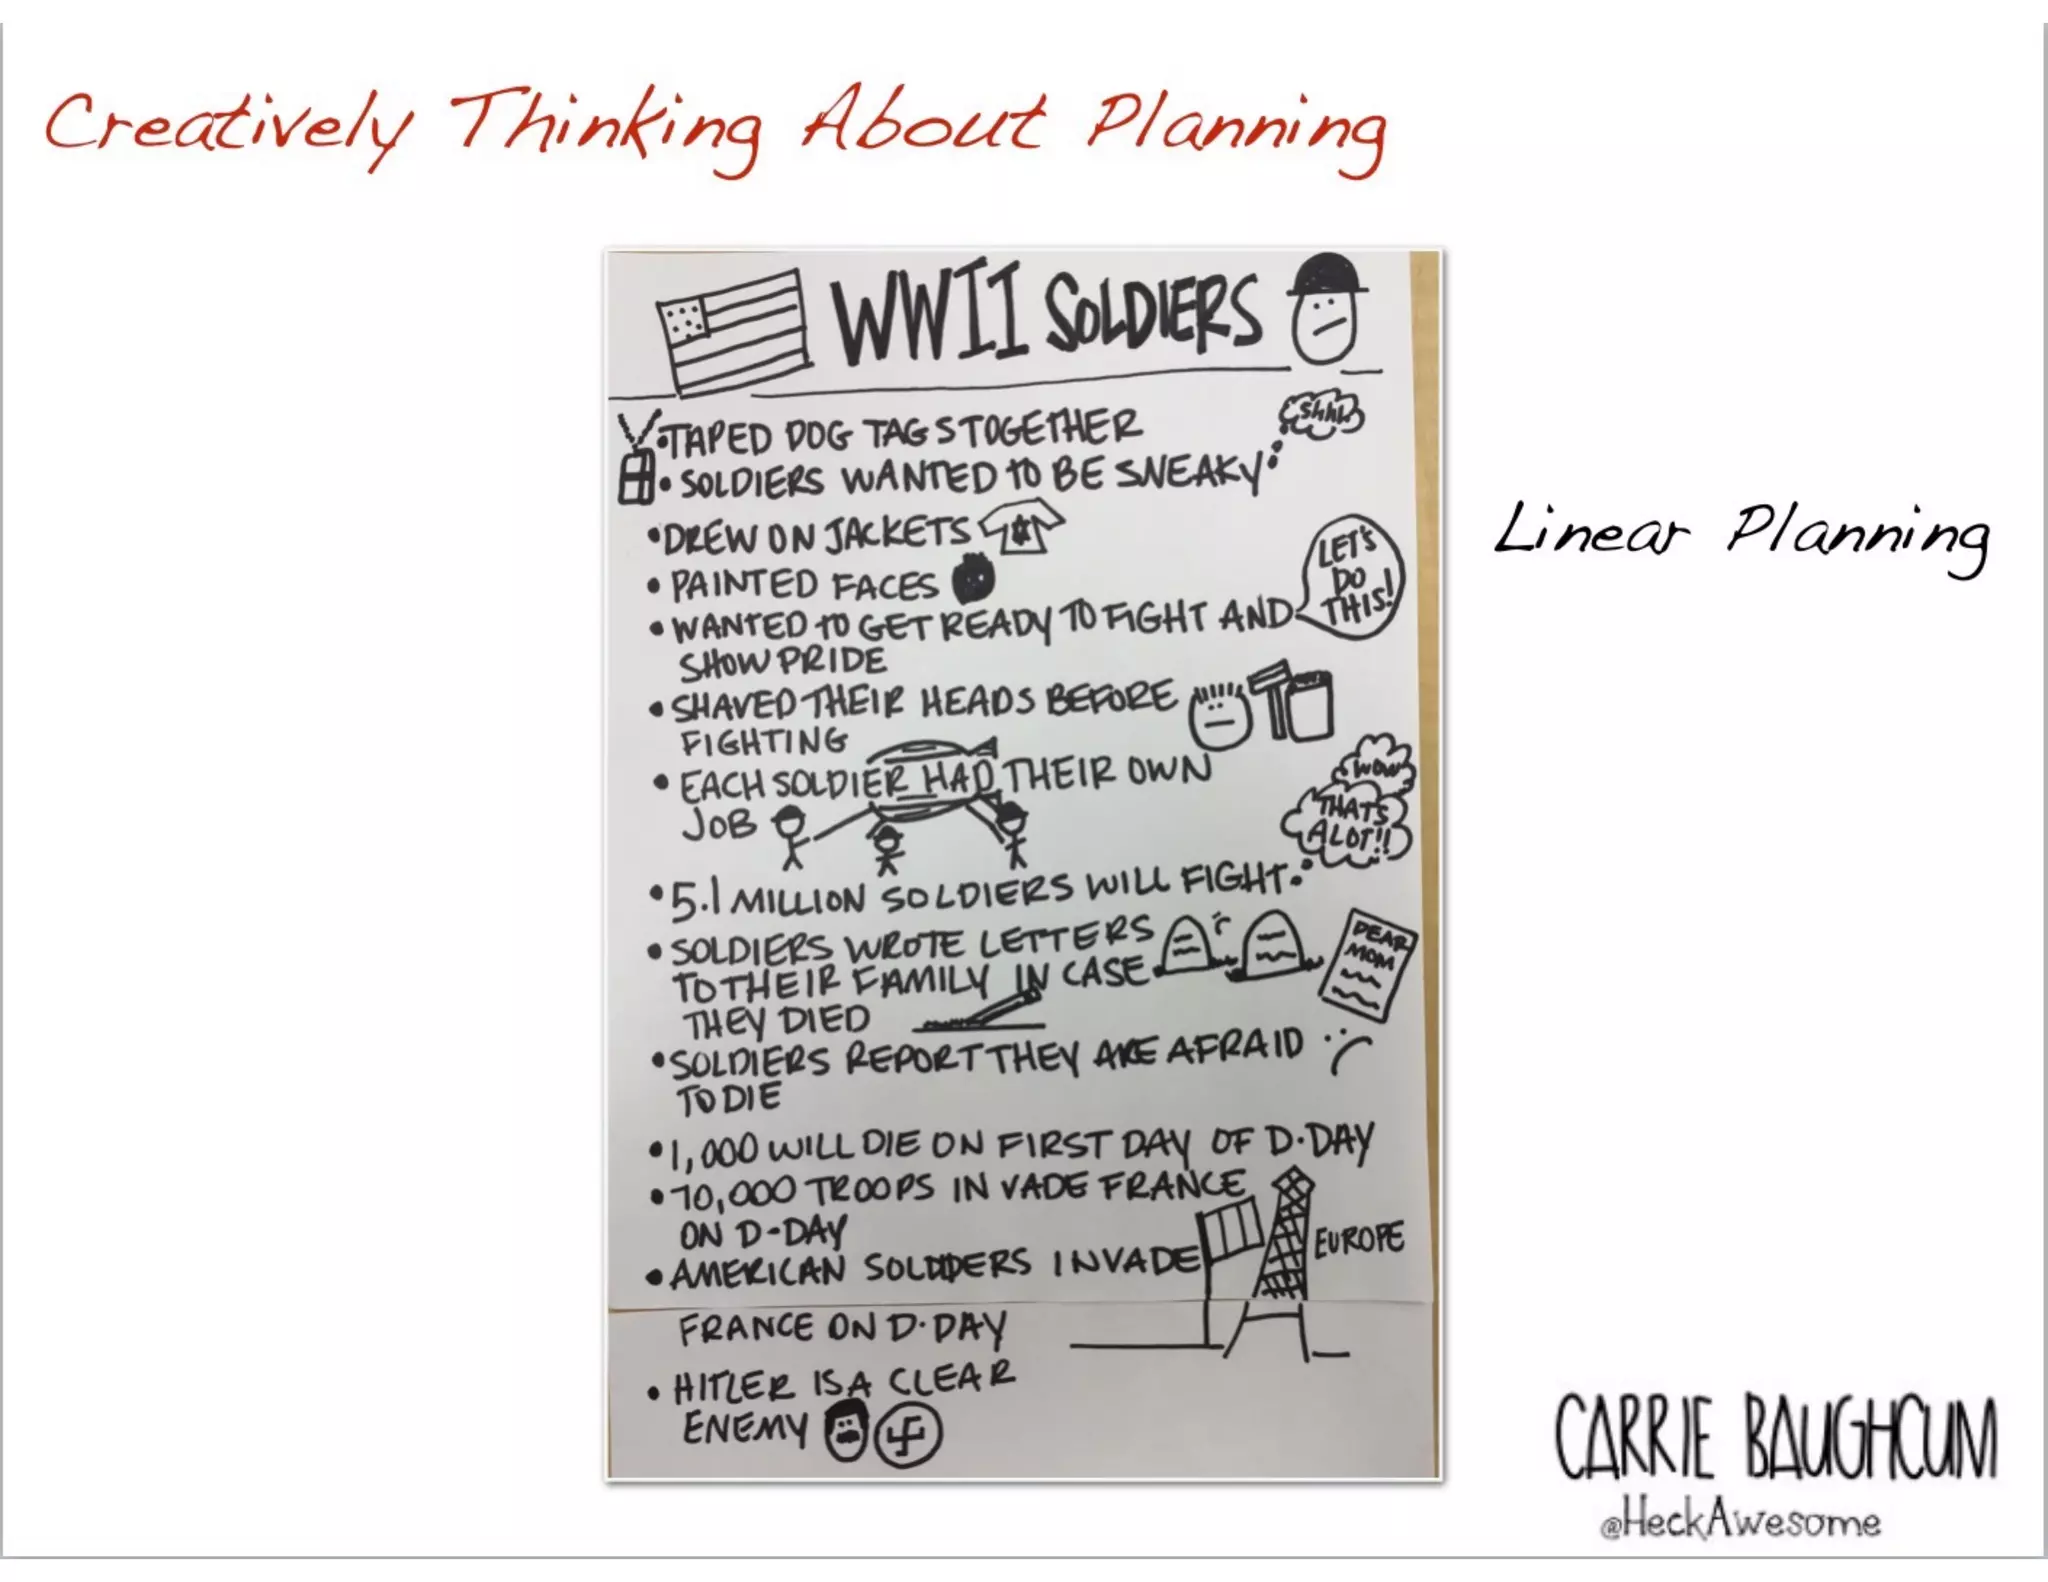 Creatively Thinking About Planning
WWII SOLDIERS
• TAPED DOG TAGS TOGETHER
shhh
• SOLDIERS WANTED TO BE SNEAKY
• DREW ON JACKETS
• PAINTED FACES
LET'S
DO
THIS!
• WANTED TO GET READY TO FIGHT AND
SHOW PRIDE
• SHAVED THEIR HEADS BEFORE
FIGHTING
• EACH SOLDIER HAD THEIR OWN
JOB
WOW
THATS
A LOT!!
• 5.1 MILLION SOLDIERS WILL FIGHT
• SOLDIERS WROTE LETTERS
TO THEIR FAMILY IN CASE
THEY DIED
DEAR
MOM
• SOLDIERS REPORT THEY ARE AFRAID
TO DIE
• 1,000 WILL DIE ON FIRST DAY OF D-DAY
• 10,000 TROOPS INVADE FRANCE
ON D-DAY
• AMERICAN SOLDIERS INVADE
EUROPE
FRANCE ON D-DAY
• HITLER IS A CLEAR
ENEMY
Linear Planning
CARRIE BAUGHCUM
@HeckAwesome